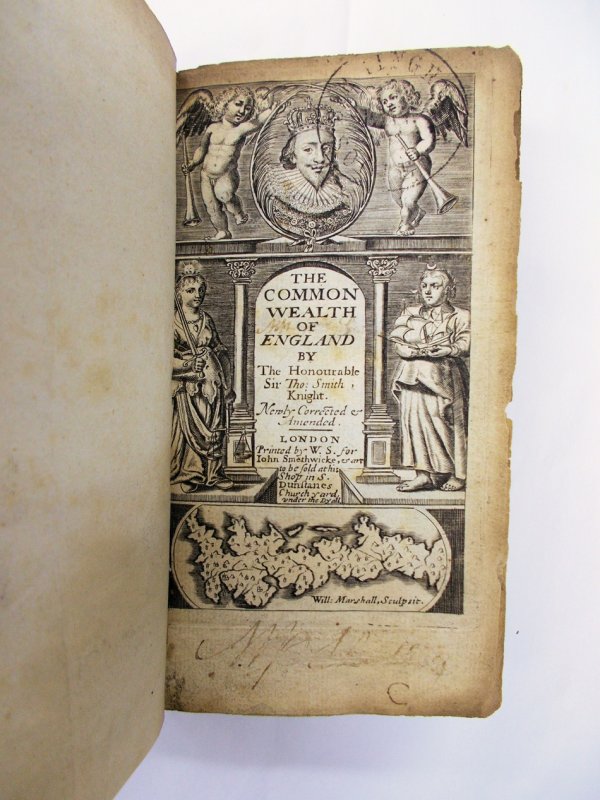 THE
COMMON
WEALTH
OF
ENGLAND
BY
The Honourable
Sir Tho: Smith,
Knight.
Newly Corrected &
Amended.
LONDON
Printed by W. S. for
Iohn Smethwicke, & are
to be sold at his
Shop in S.
Dunstanes
Church yard,
under the Dyall
Will: Marshall, Sculpsit.
C